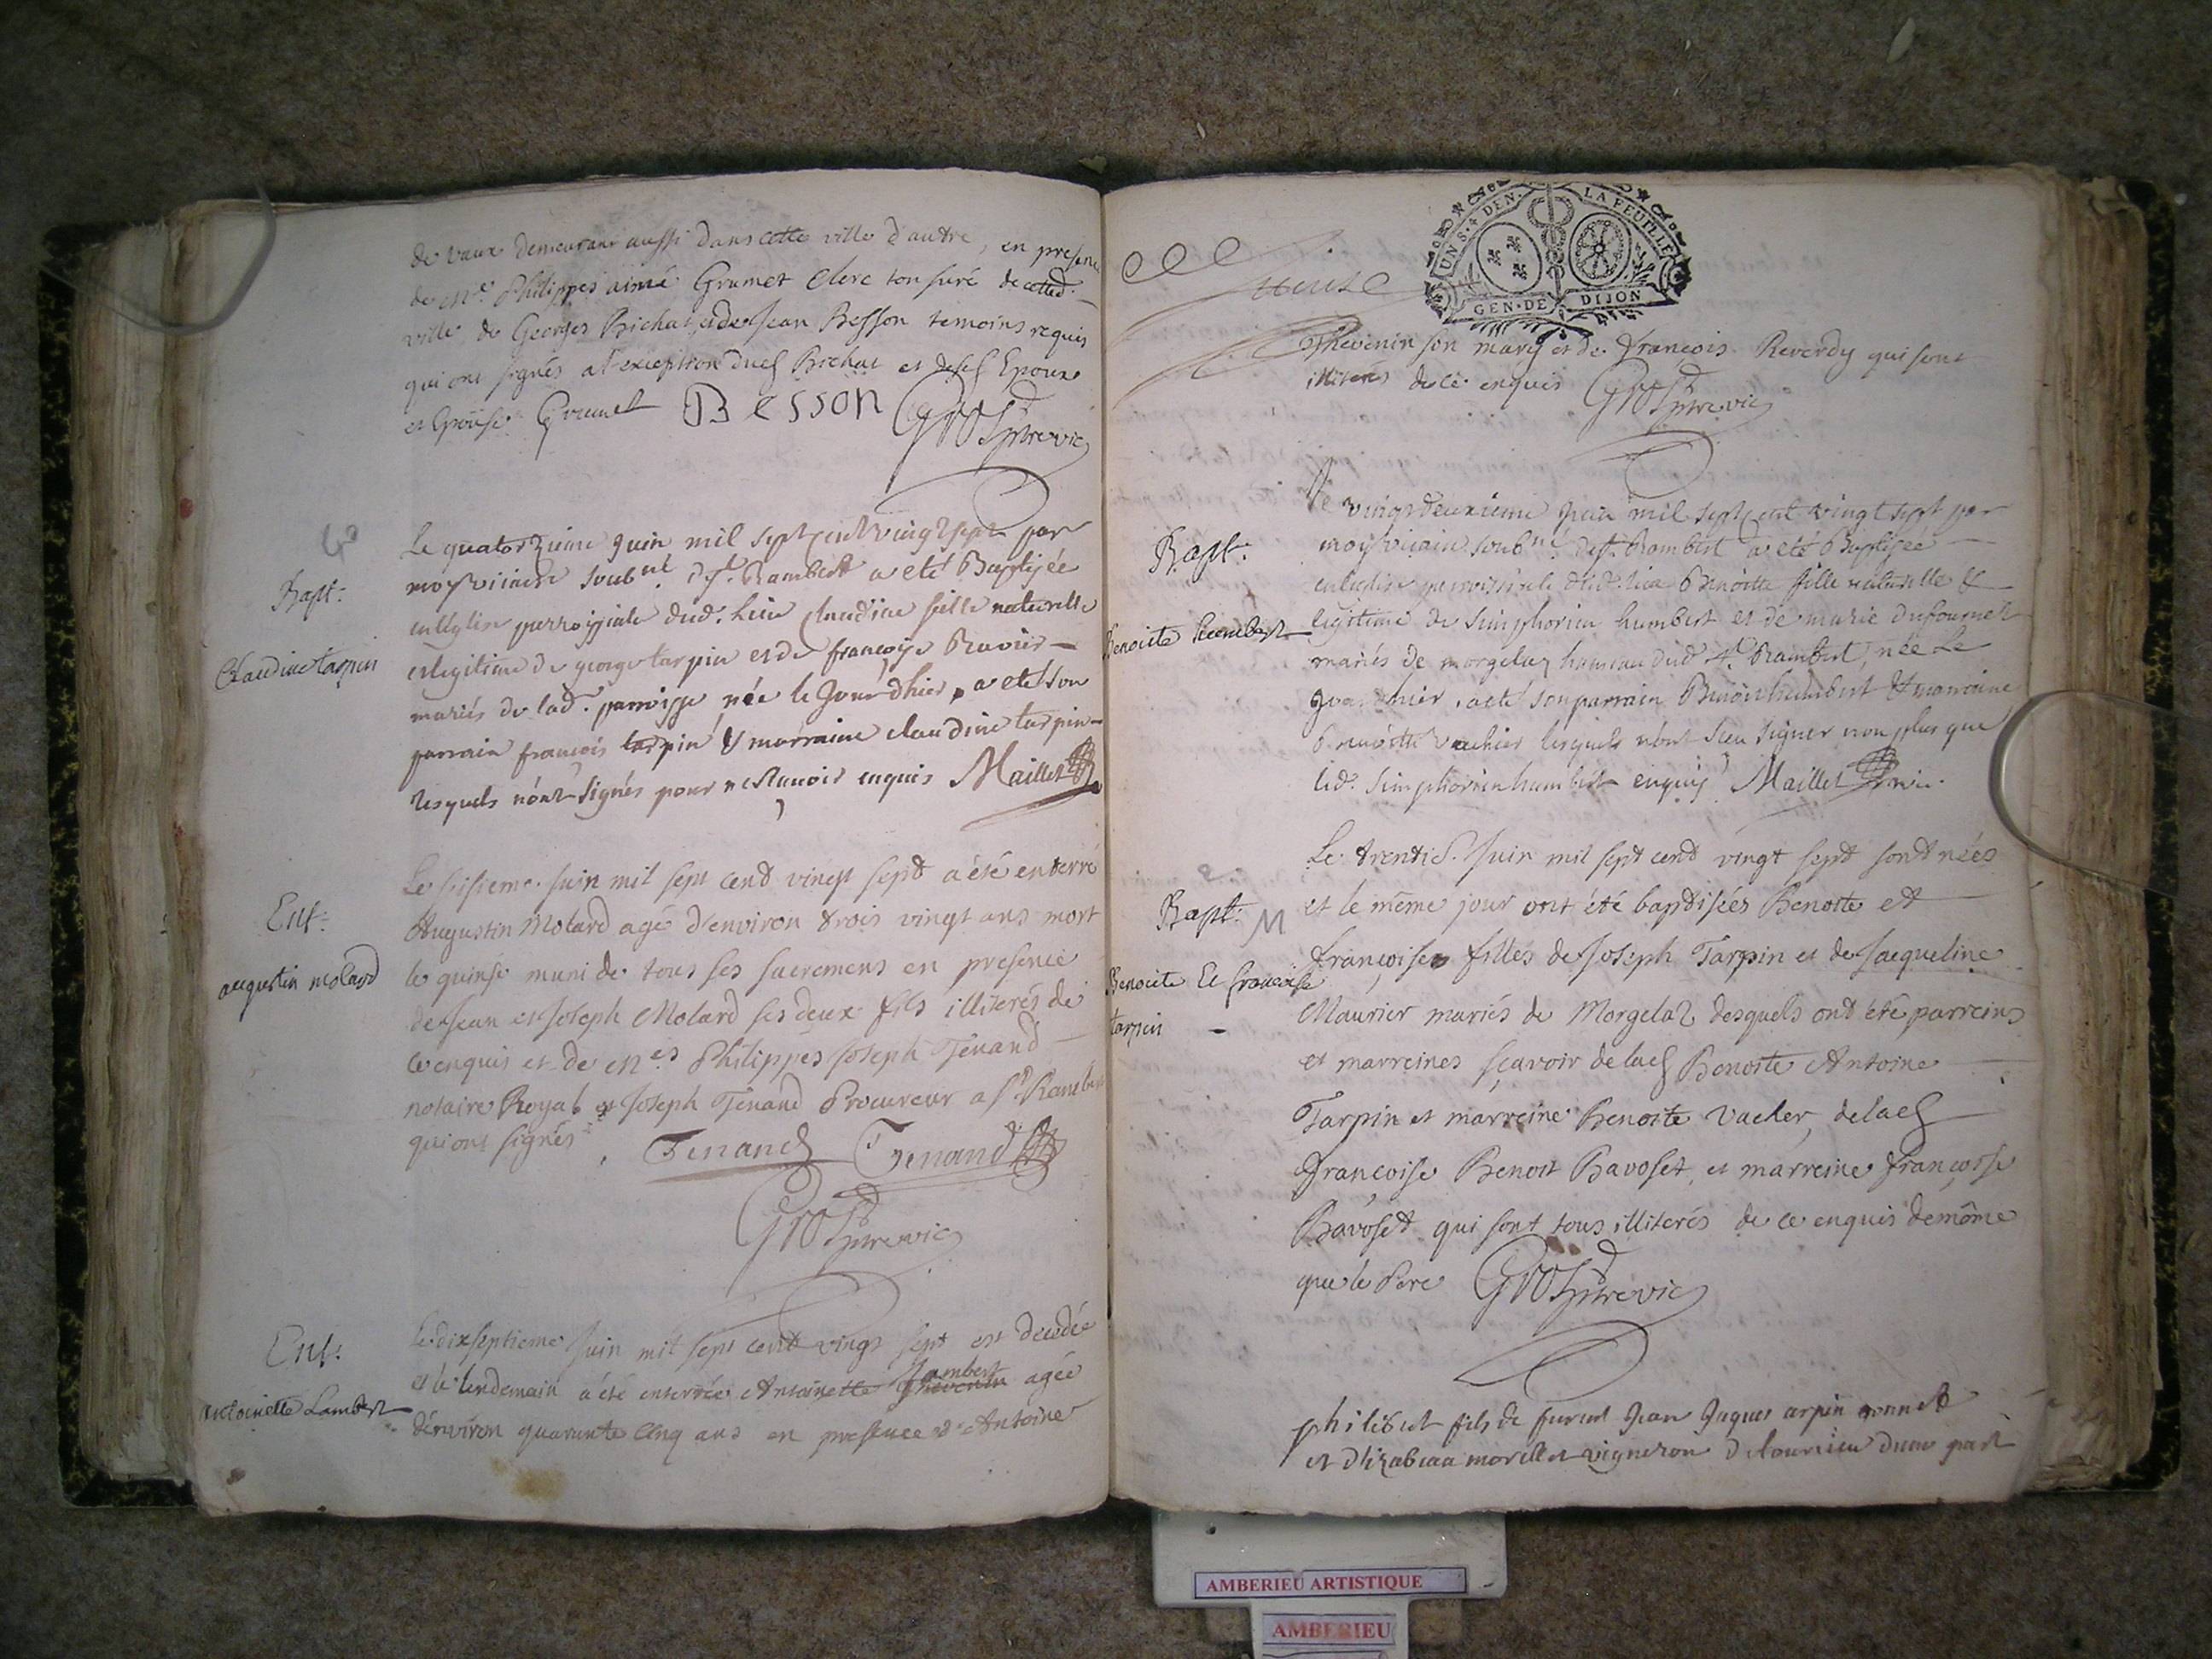 de vaux demeurant aussi dans cette ville d'autre, en presence
de Me. Philippes aimé Grumet Clerc tonsuré de cetted.
ville, de Georges Bichat, et de Jean Besson temoins requis
qui ont signés a l'exception dud Bichat et desd Epoux
et Epouse Grumet Besson Gros ptre vic
Bapt:
Claudine tarpin
Le quatorzieme juin mil sept cent vingt sept par
moy vicaire soubné de St. Rambert a eté Baptisée
en l'eglise parroissiale dud. lieu Claudine fille naturelle
et legitime de george tarpin et de françoise Ravier
mariés de lad. parroisse née le Jourdhier, a eté son
parrain françois tarpin & marraine claudine tarpin
lesquels n'ont signés pour ne sçavoir enquis Maillet
Ent:
augustin molard
Le sisieme Juin mil sept cend vingt sept a été enterré
Augustin Molard agé d'environ trois vingt ans mort
le quinse muni de tous ses sacremens en presence
de Jean et Joseph Molard ses deux fils illiterés de
ce enquis et de Mes Philippes Joseph Tenand
notaire Royal et Joseph Tenand Procureur a St. Rambert
qui ont signés. Tenand Tenand
Gros ptre vic
Ent:
antoinette Lambert
Le dixseptieme Juin mil sept cend vingt sept est decedée
et le lendemain a été enterrée Antoinette Thevenin Lambert agée
d'environ quarante cinq ans en presence d'Antoine
UN S. 4 DEN. LA FEUILLE
GEN. DE DIJON
Thevenin son mary et de François Reverdy qui sont
illiterés de ce enquis Gros ptre vic
Bapt:
Benoite humbert
Le vingtdeuxieme juin mil sept cent vingt sept par
moy vicaire soubné de St. Rambert a eté Baptisée
en l'eglise parroissiale dud. lieu Benoitte fille naturelle &
legitime de Simphorien humbert et de marie dufournet
mariés de morgelaz hameau dud St. Rambert, née Le
Jourdhier, a eté son parrain Benoit humbert & marraine
Benoitte Vachier lesquels n'ont sceu signer non plus que
led. Simphorien humbert enquis Maillet vic.
Bapt: M
Benoite Et francoise
tarpin -
Le trentie. Juin mil sept cend vingt sept sont nées
et le même jour ont été baptisées Benoite et
Françoise filles de Joseph Tarpin et de Jacqueline
Maurier mariés de Morgelaz desquels ont été parreins
et marreines sçavoir de lad Benoite Antoine
Tarpin et marreine Benoite Vacher, de lad
Françoise Benoit Bavoset, et marreine Françoise
Bavoset qui sont tous illiterés de ce enquis de même
que le Pere Gros ptre vic
philibert fils de furent Jean Jaques arpin
et morellet vigneron d'une part